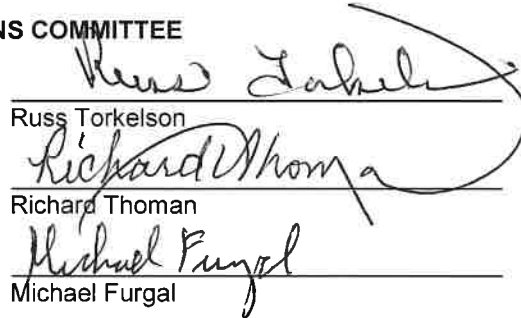 NS COMMITTEE
Russ Torkelson
Russ Torkelson
Richard Thoman
Richard Thoman
Michael Furgal
Michael Furgal